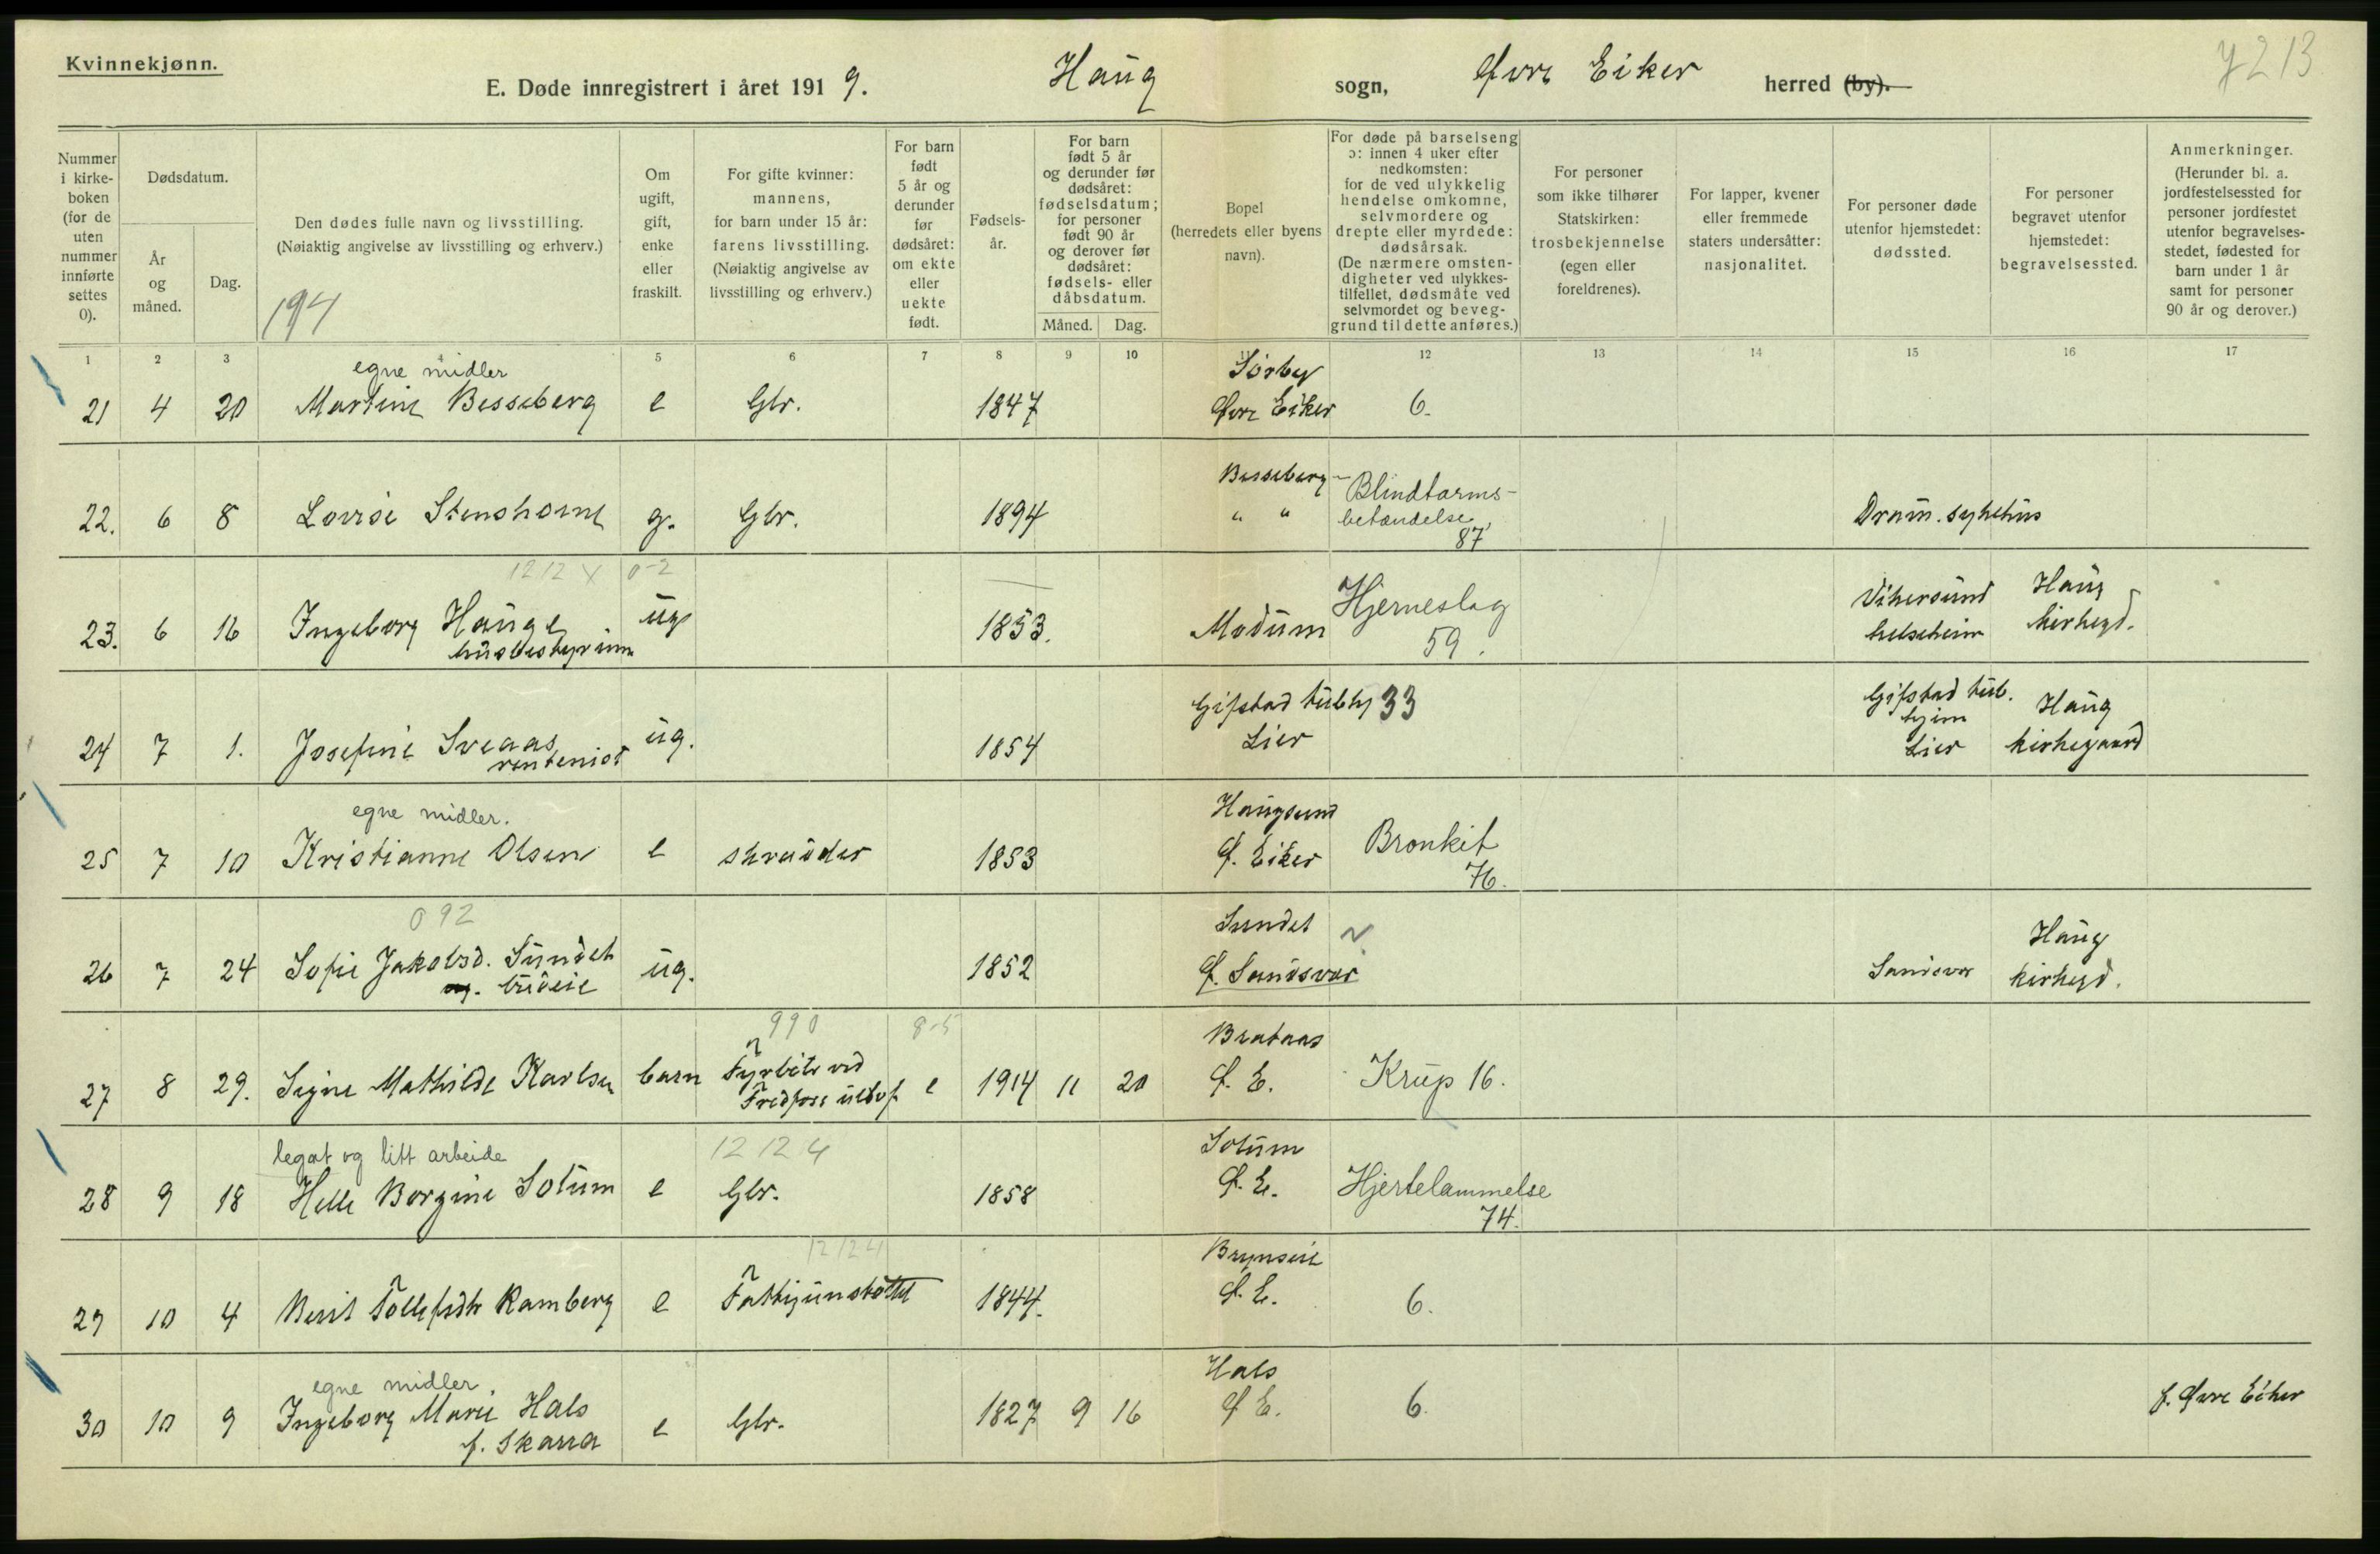 Kvinnekjønn.
E. Døde innregistrert i året 1919. Haug sogn, Øvre Eiker herred (by).
Nummer i kirke-boken (for de uten nummer innførte settes 0).
Dødsdatum.
År og måned.
Dag.
Den dødes fulle navn og livsstilling.
(Nøiaktig angivelse av livsstilling og erhverv.)
194
Om ugift, gift, enke eller fraskilt.
For gifte kvinner: mannens, for barn under 15 år: farens livsstilling. (Nøiaktig angivelse av livsstilling og erhverv.)
For barn født 5 år og derunder før dødsåret: om ekte eller uekte født.
Fødsels-år.
For barn født 5 år og derunder før dødsåret: fødselsdatum; for personer født 90 år og derover før dødsåret: fødsels- eller dåbsdatum.
Måned. Dag.
Bopel (herredets eller byens navn).
For døde på barselseng ɔ: innen 4 uker efter nedkomsten: for de ved ulykkelig hendelse omkomne, selvmordere og drepte eller myrdede: dødsårsak. (De nærmere omsten-digheter ved ulykkes-tilfellet, dødsmåte ved selvmordet og beveg-grund til dette anføres.)
For personer som ikke tilhører Statskirken: trosbekjennelse (egen eller foreldrenes).
For lapper, kvener eller fremmede staters undersåtter: nasjonalitet.
For personer døde utenfor hjemstedet: dødssted.
For personer begravet utenfor hjemstedet: begravelsessted.
Anmerkninger. (Herunder bl. a. jordfestelsessted for personer jordfestet utenfor begravelses-stedet, fødested for barn under 1 år samt for personer 90 år og derover.)
1 2 3 4 5 6 7 8 9 10 11 12 13 14 15 16 17
egne midler Sörby
21 4 20 Martine Besseberg e Gbr. 1847 Øvre Eiker 6.
Besseberg Blindtarms-
22. 6 8 Lovise Stensholm g. Gbr. 1894 " " betændelse, Dram. sykehus
87
12124 0-2
Hjerneslag Vikersund Haug
23. 6 16 Ingeborg Hauge ug 1853. Modum 59. helseheim kirkegd.
husbestyrinne
Gifstad tubhj 33 Gifstad tub. Haug
hjem
24 7 1. Josefine Sveaas ug. 1854 Lier Lier kirkegaard
rentenist
egne midler. Haugsund
25 7 10 Kristianne Olsen e skrædder 1853 Ø. Eiker Bronkit
76.
092 Sundet Haug
26 7 24 Sofie Jakobsd. Sundet ug. 1852 Ø. Sandsvær Sandsvær kirkegd.
budeie
990 8-5 Brataas
27 8 29. Signe Mathilde Karlsen barn Fyrbøter ved e 1914 11 20 Ø. E. Krup 16.
Fredfoss uldvf
legat og litt arbeide 12124 Solum
28 9 18 Helle Borgine Solum e Gbr. 1858 Ø. E. Hjertelammelse
74.
12124
29 10 4 Berit Tollefsdtr Ramberg e Fattigunstöttet 1844. Ø. E. 6.
egne midler. Hals
30 10 9 Ingeborg Marie Hals e Gbr. 1827 9 16 Ø E. 6. f. Øvre Eiker
f. Skarra